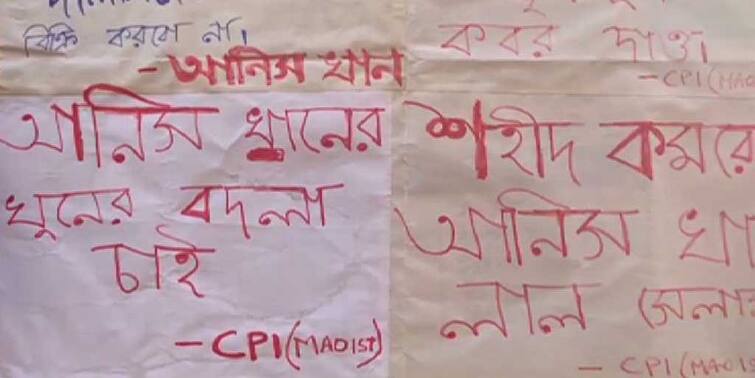 বিক্রি করবো না।
- আনিস খান
আনিস খানের
খুনের বদলা
চাই
- CPI (MAOIST)
কবর দাও।
- CPI (MAO
শহীদ কমরে
আনিস খা
লাল সেলা
- CPI (MAOIS